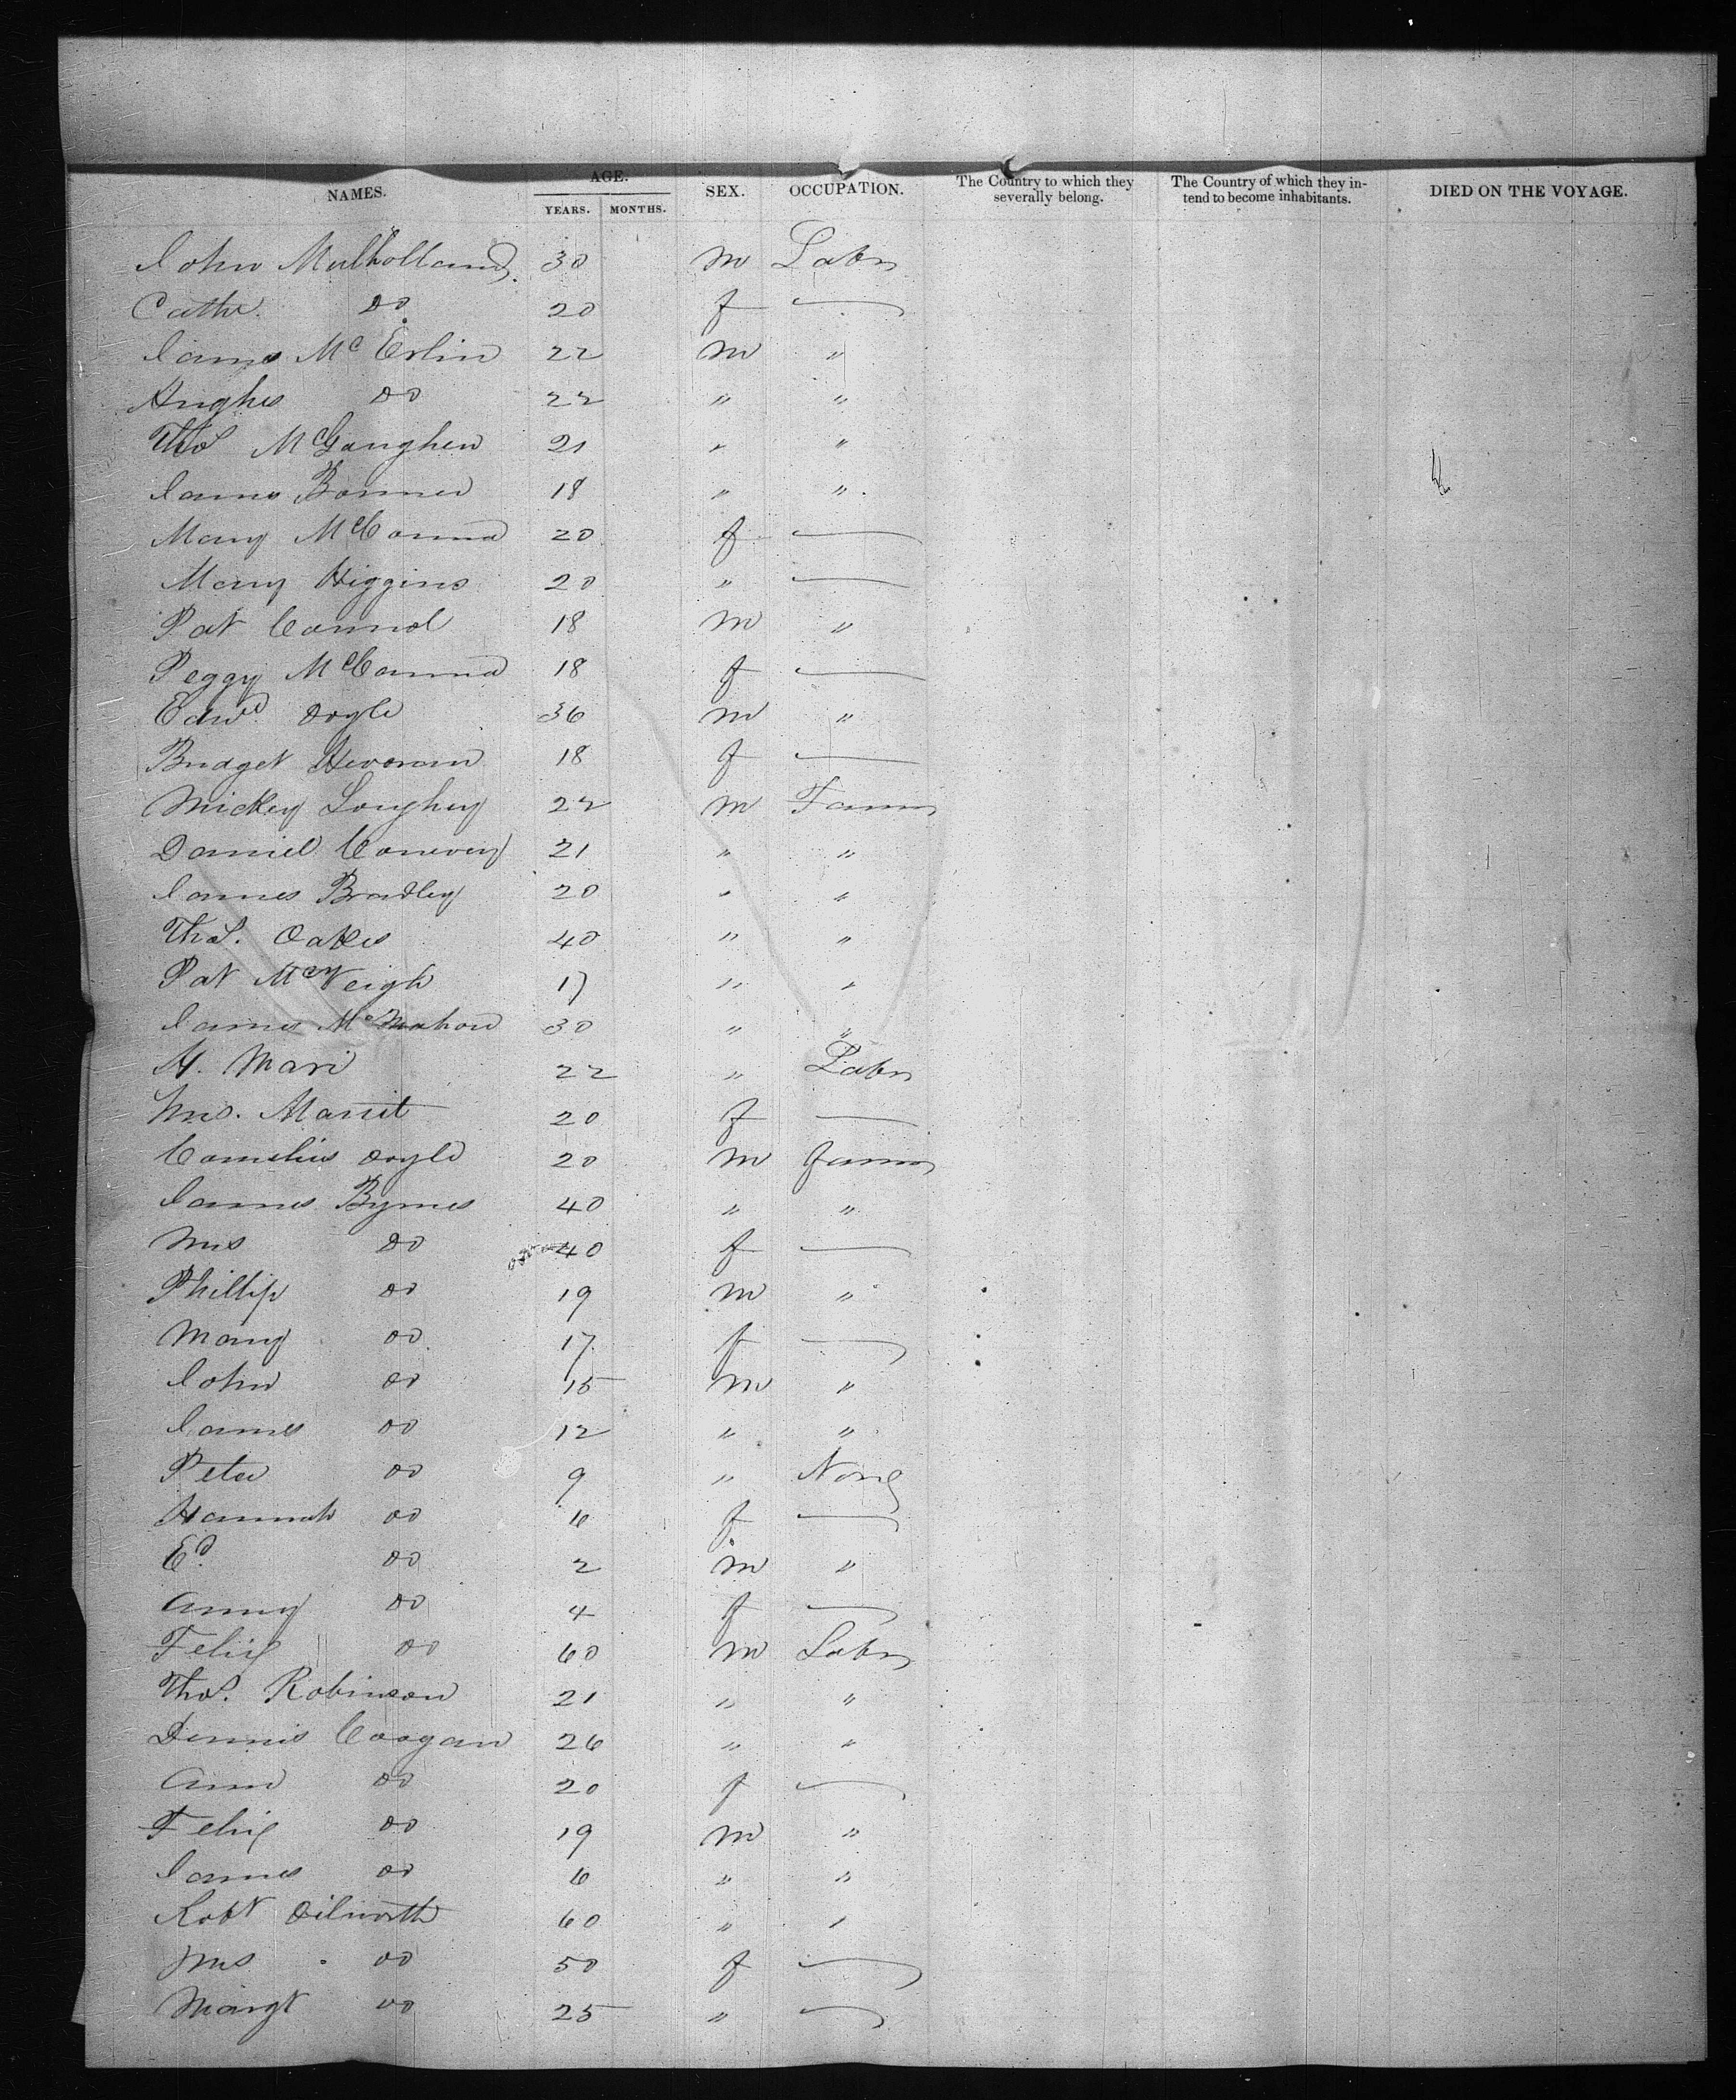 NAMES. AGE. SEX. OCCUPATION. The Country to which they severally belong. The Country of which they intend to become inhabitants. DIED ON THE VOYAGE.
YEARS. MONTHS.
John Mulholland 30 m Labr
Cathe. Do. 20 f —
James McErlin 22 m "
Hughes Do 22 " "
Thos McGaughen 21 " "
James Bonner 18 " "
Mary McCanna 20 f —
Mary Higgins 20 " —
Pat Connol 18 m "
Peggy McCanna 18 f —
Edwd. Doyle 36 m "
Bridget 18 f —
Mickey Loughey 22 m Farmr
Daniel 21 " "
James Bradley 20 " "
Thos. Oakes 40 " "
Pat McVeigh 17 " "
James McMahon 30 " "
H. 22 " Labr
Mrs. 20 f —
Cornelius Doyle 20 m farmr
James Byrnes 40 " "
Mrs Do 40 f —
Phillip Do 19 m "
Mary Do 17 f —
John Do 15 m "
James Do 12 " "
Peter Do 9 " None
Hannah Do 6 f —
Ed. Do 2 m "
Anny Do 4 f —
Felix Do 60 m Labr
Thos. Robinson 21 " "
Dennis Coogan 26 " "
Ann Do 20 f —
Felix Do 19 m "
James Do 6 " "
Robt Dilworth 60 " "
Mrs Do 50 f —
Margt Do 25 " —